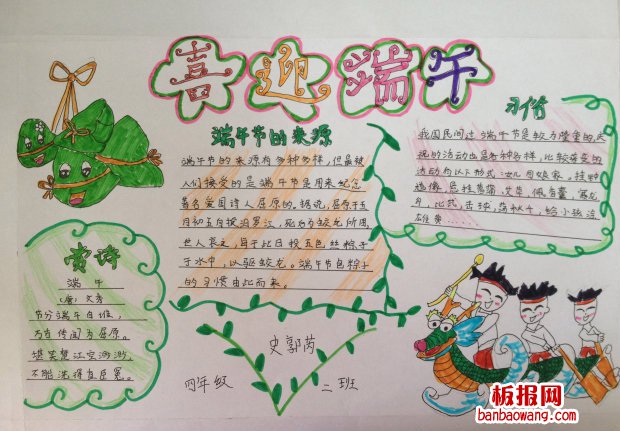 喜迎端午
端午节的来源
端午节的来源有多种多样，但最被
人们接受的是端午节是用来纪念
著名爱国诗人屈原的。据说，屈原于五
月初五自投汨罗江，死后为蛟龙所困，
世人哀之，每于此日投五色丝粽子
于水中，以驱蛟龙。端午节包粽子
的习惯由此而来。
习俗
我国民间过端午节是较为隆重的，庆
祝的活动也是各种各样，比较普遍的
活动有以下形式：
赏诗
端午
（唐）文秀
节分端午自谁言，
万古传闻为屈原。
堪笑楚江空渺渺，
不能洗得直臣冤。
史郭芮
四年级 二班
板报网
www.banbaowang.com